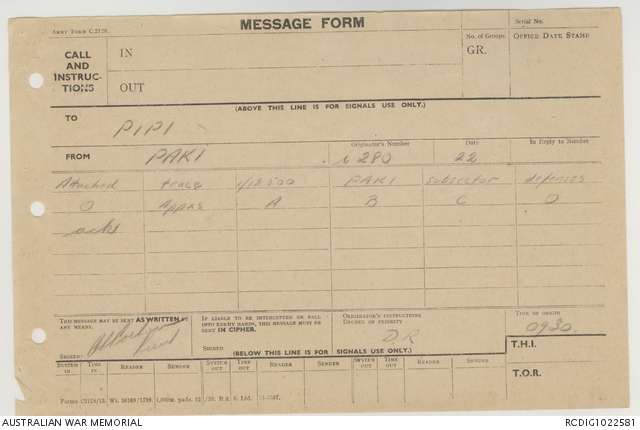 ARMY FORM C.2128.
MESSAGE FORM
Serial No.
CALL AND INSTRUCTIONS
IN
OUT
No. of Groups.
GR.
OFFICE DATE STAMP
(ABOVE THIS LINE IS FOR SIGNALS USE ONLY.)
TO
PIPI
FROM
PAKI
Originator's Number
280
Date
22
In Reply to Number
Attached trace 1/12500 PAKI subsector defences
O Appxs A B C D
ack
THIS MESSAGE MAY BE SENT AS WRITTEN BY ANY MEANS.
SIGNED
IF LIABLE TO BE INTERCEPTED OR FALL INTO ENEMY HANDS, THIS MESSAGE MUST BE SENT IN CIPHER.
SIGNED
ORIGINATOR'S INSTRUCTIONS
DEGREE OF PRIORITY
DR
TIME OF ORIGIN
0930
(BELOW THIS LINE IS FOR SIGNALS USE ONLY.)
T.H.I.
SYSTEM IN TIME IN READER SENDER SYSTEM OUT TIME OUT READER SENDER SYSTEM OUT TIME OUT READER SENDER
T.O.R.
AUSTRALIAN WAR MEMORIAL
RCDIG1022581